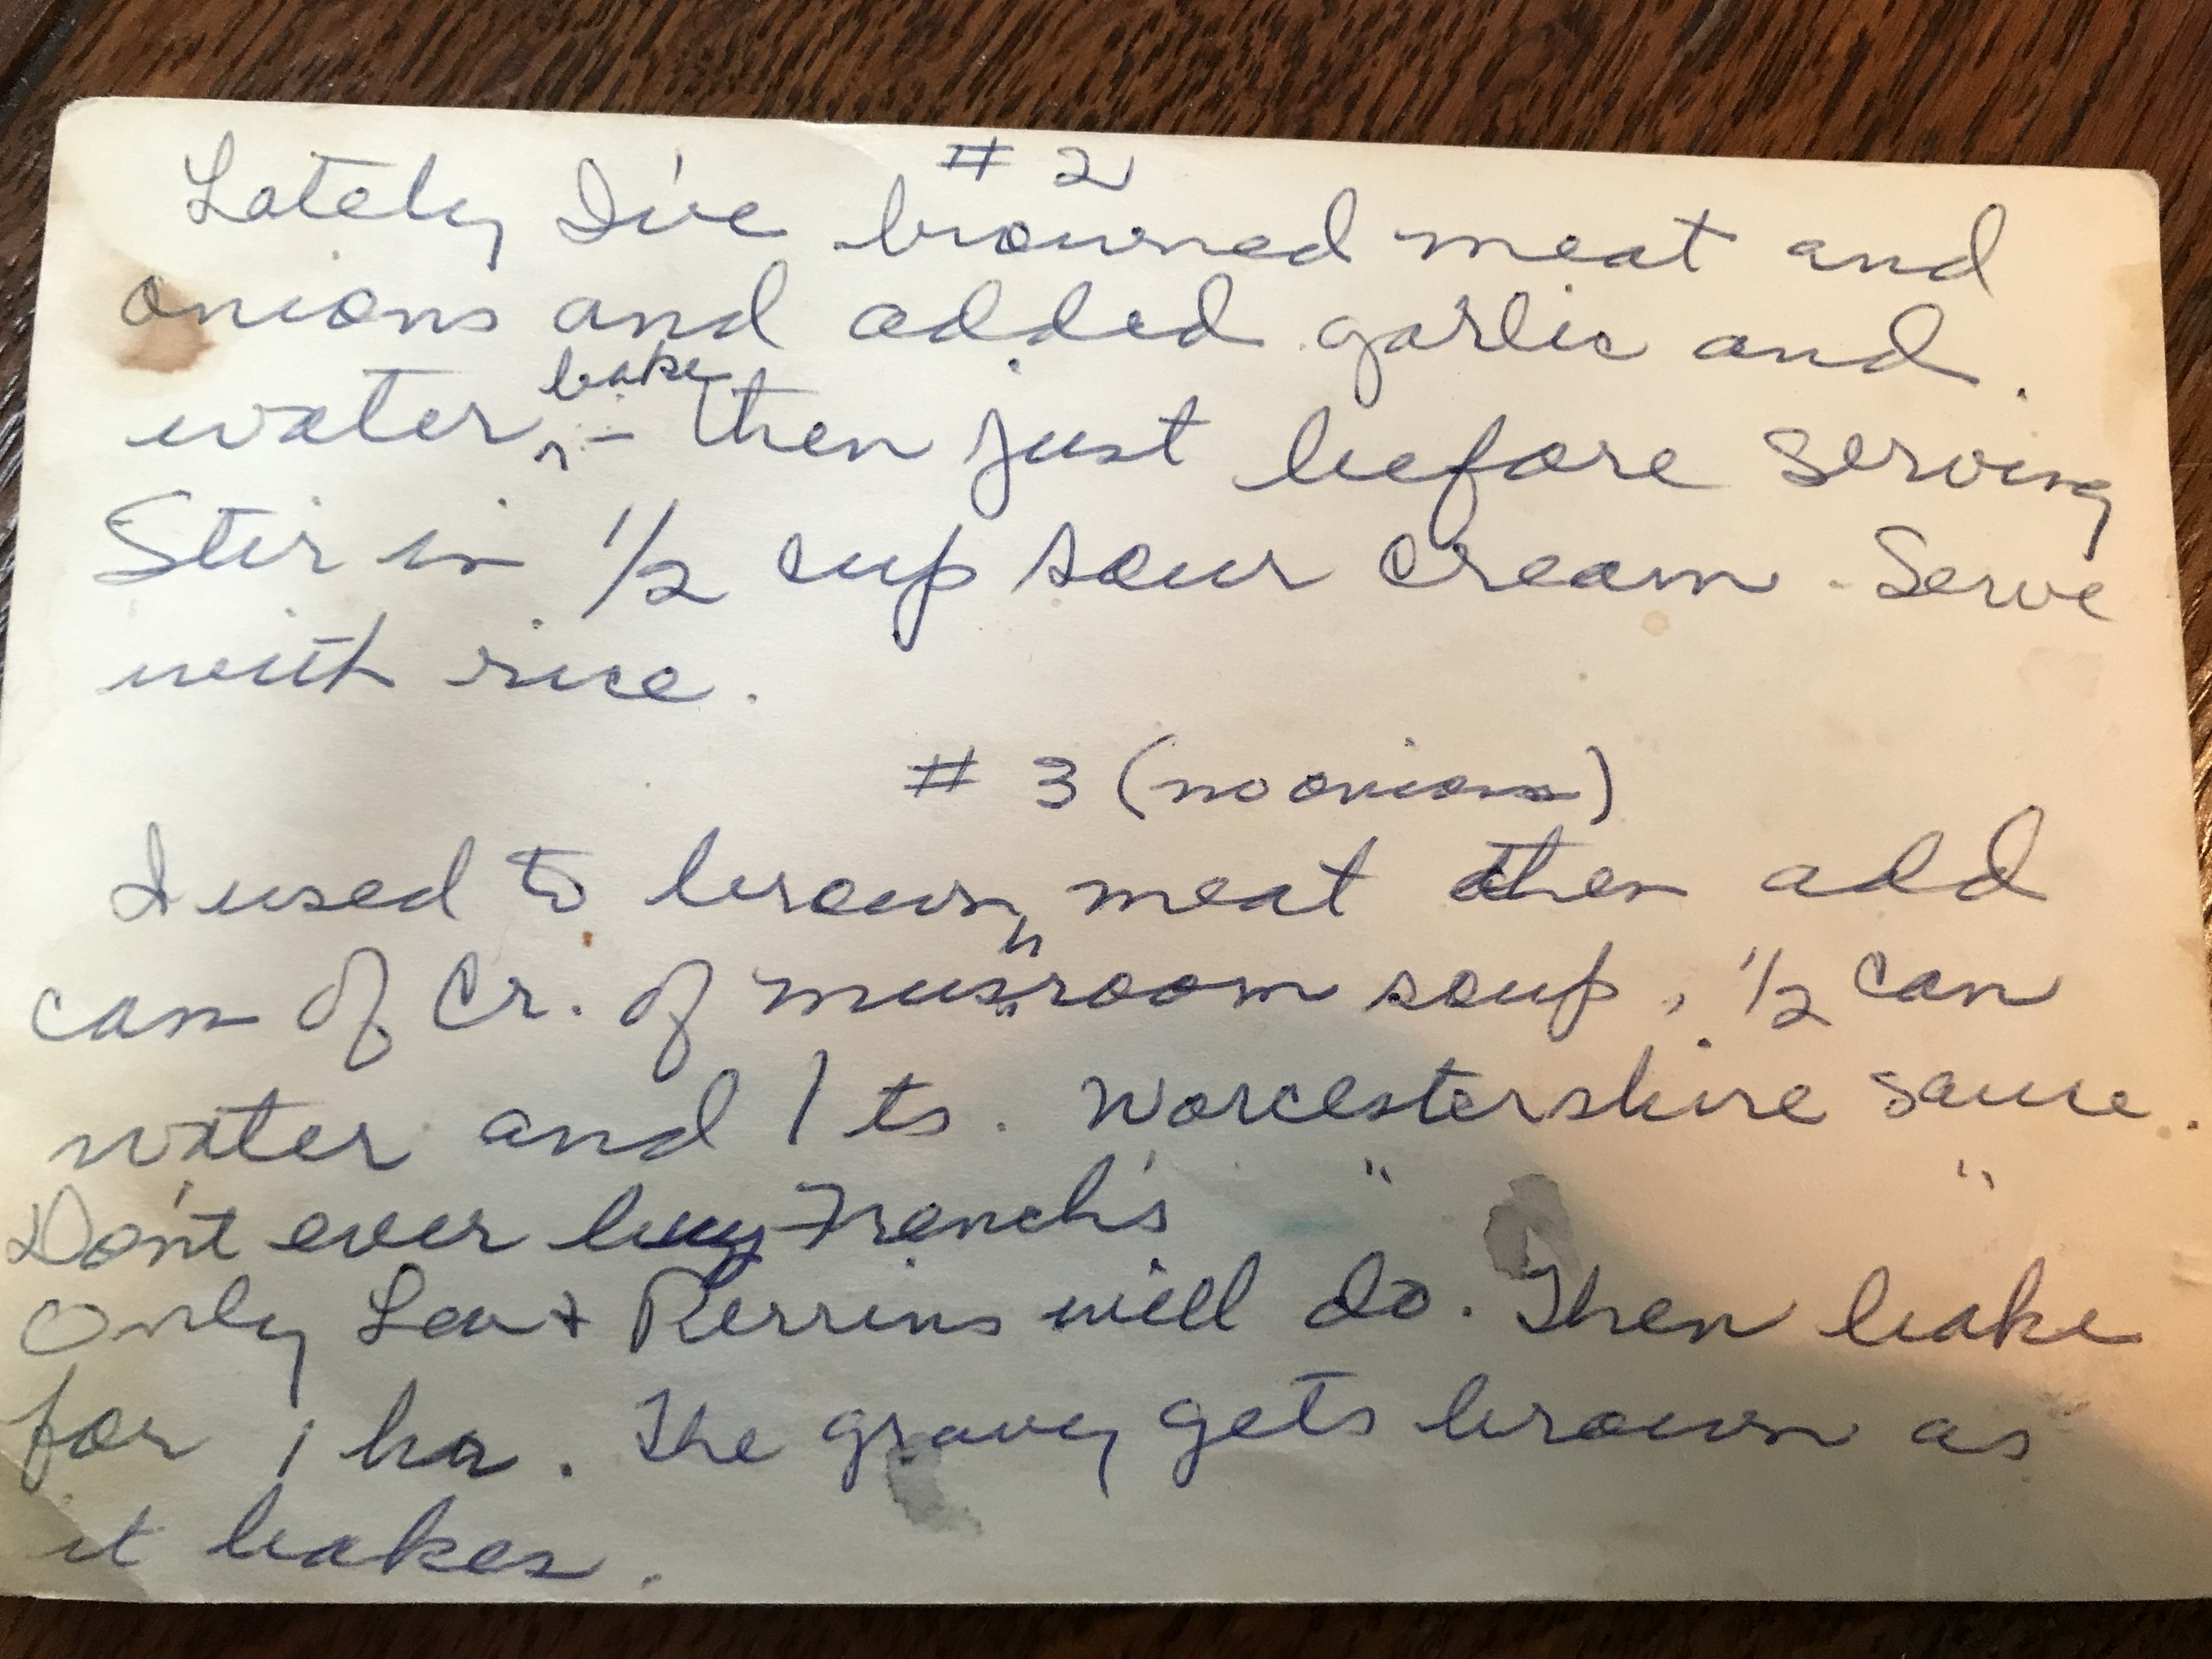 # 2
Lately I've browned meat and
onions and added garlic and
water, bake - then just before serving
Stir in 1/2 cup sour cream. Serve
with rice.
# 3 (no onions)
I used to brown meat then add
can of Cr. of mushroom soup, 1/2 can
water and 1 ts. Worcestershire sauce.
Don't ever buy French's " "
Only Lea & Perrins will do. Then bake
for 1 hr. The gravy gets brown as
it bakes.